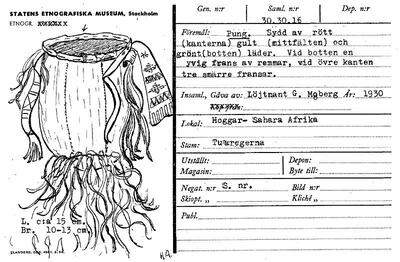 STATENS ETNOGRAFISKA MUSEUM, Stockholm
ETNOGR.
L. c:a 15 cm.
Br. 10-13 cm.
Gen. n:r
Saml. n:r
Dep. n:r
30.30.16
Föremål: Pung. Sydd av rött
(kanterna) gult (mittfälten) och
grönt(botten) läder. Vid botten en
yvig frans av remmar, vid övre kanten
tre smärre fransar.
Insaml., Gåva av: Löjtnant G. Moberg År: 1930
Lokal: Hoggar- Sahara Afrika
Stam: Tuaregerna
Utställt: Depon:
Magasin: Byte till:
Negat. n:r S. nr. Bild n:r
Skiopt. „ Kliché „
Publ.